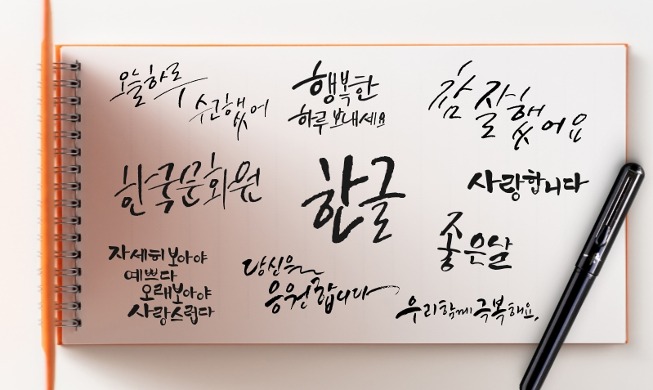 오늘하루
수고했어
행복한
하루보내세요
참 잘했어요
한국문화원
한글
사랑합니다
좋은날
자세히보아야
예쁘다
오래보아야
사랑스럽다
당신을
응원합니다
우리함께극복해요.